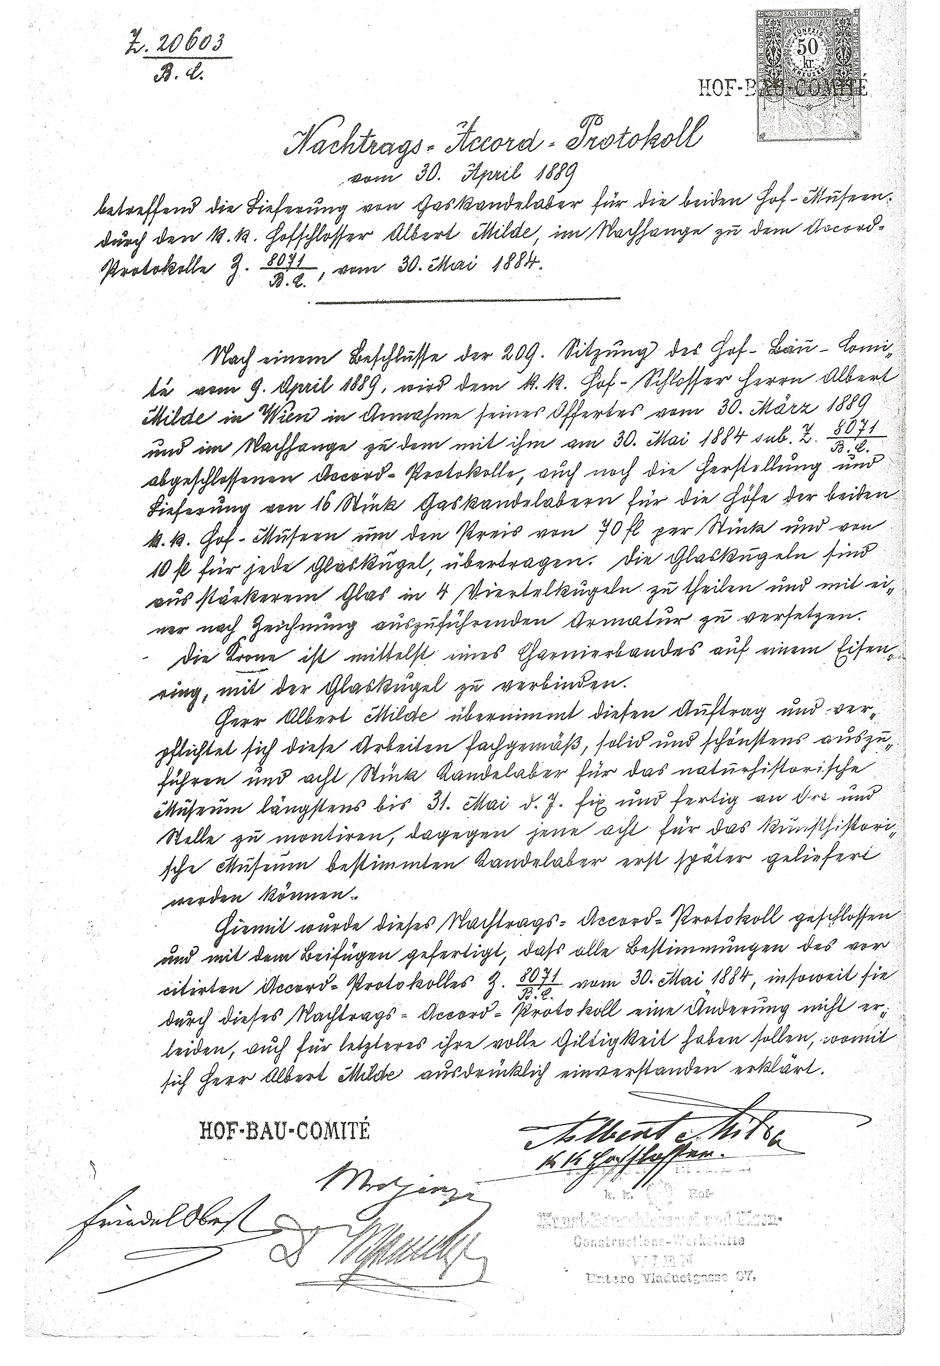 Z. 20603
B. C.
FÜNFZIG
50
kr.
KREUZER
1888
HOF-BAU-COMITÉ
Nachtrags-Accord-Protokoll
vom 30. April 1889
betreffend die Lieferung von Gaskandelaber für die beiden Hof-Museen.
durch den k. k. Hofschlosser Albert Milde, im Nachhange zu dem Accord-
Protokolle Z. 8071/B.C., vom 30. Mai 1884.
Nach einem Beschlusse der 209. Sitzung des Hof-Bau-Comi-
té vom 9. April 1889, wird dem k. k. Hof-Schlosser Herrn Albert
Milde in Wien in Annahme seines Offertes vom 30. März 1889
und im Nachhange zu dem mit ihm am 30. Mai 1884 sub. Z. 8071/B.C.
abgeschlossenen Accord-Protokolle, auch noch die Herstellung und
Lieferung von 16 Stück Gaskandelabern für die Höfe der beiden
k. k. Hof-Museen um den Preis von 70 fl per Stück und von
10 fl für jede Glaskugel, übertragen. Die Glaskugeln sind
aus stärkerem Glas in 4 Viertelkugeln zu theilen und mit ei-
ner nach Zeichnung auszuführenden Armatur zu versetzen.
Die Krone ist mittelst eines Charnierbandes auf einem Eisen-
ring, mit der Glaskugel zu verbinden.
Herr Albert Milde übernimmt diesen Auftrag und ver-
pflichtet sich diese Arbeiten fachgemäß, solid und schönstens auszu-
führen und acht Stück Kandelaber für das naturhistorische
Museum längstens bis 31. Mai d. J. fix und fertig an Ort und
Stelle zu montiren, dagegen jene acht für das kunsthistori-
sche Museum bestimmten Kandelaber erst später geliefert
werden können.
Hiemit wurde dieses Nachtrags-Accord-Protokoll geschlossen
und mit dem Beifügen gefertigt, dass alle Bestimmungen des vor
citirten Accord-Protokolles Z. 8071/B.C. vom 30. Mai 1884, insoweit sie
durch dieses Nachtrags-Accord-Protokoll eine Änderung nicht er-
leiden, auch für letzteres ihre volle Giltigkeit haben sollen, womit
sich Herr Albert Milde ausdrücklich einverstanden erklärt.
HOF-BAU-COMITÉ
Albert Milde
k k Hofschlosser.
k. k. Hof-
Kunst-Bauschlosserei und Eisen-
Constructions-Werkstätte
WIEN
Untere Viaductgasse